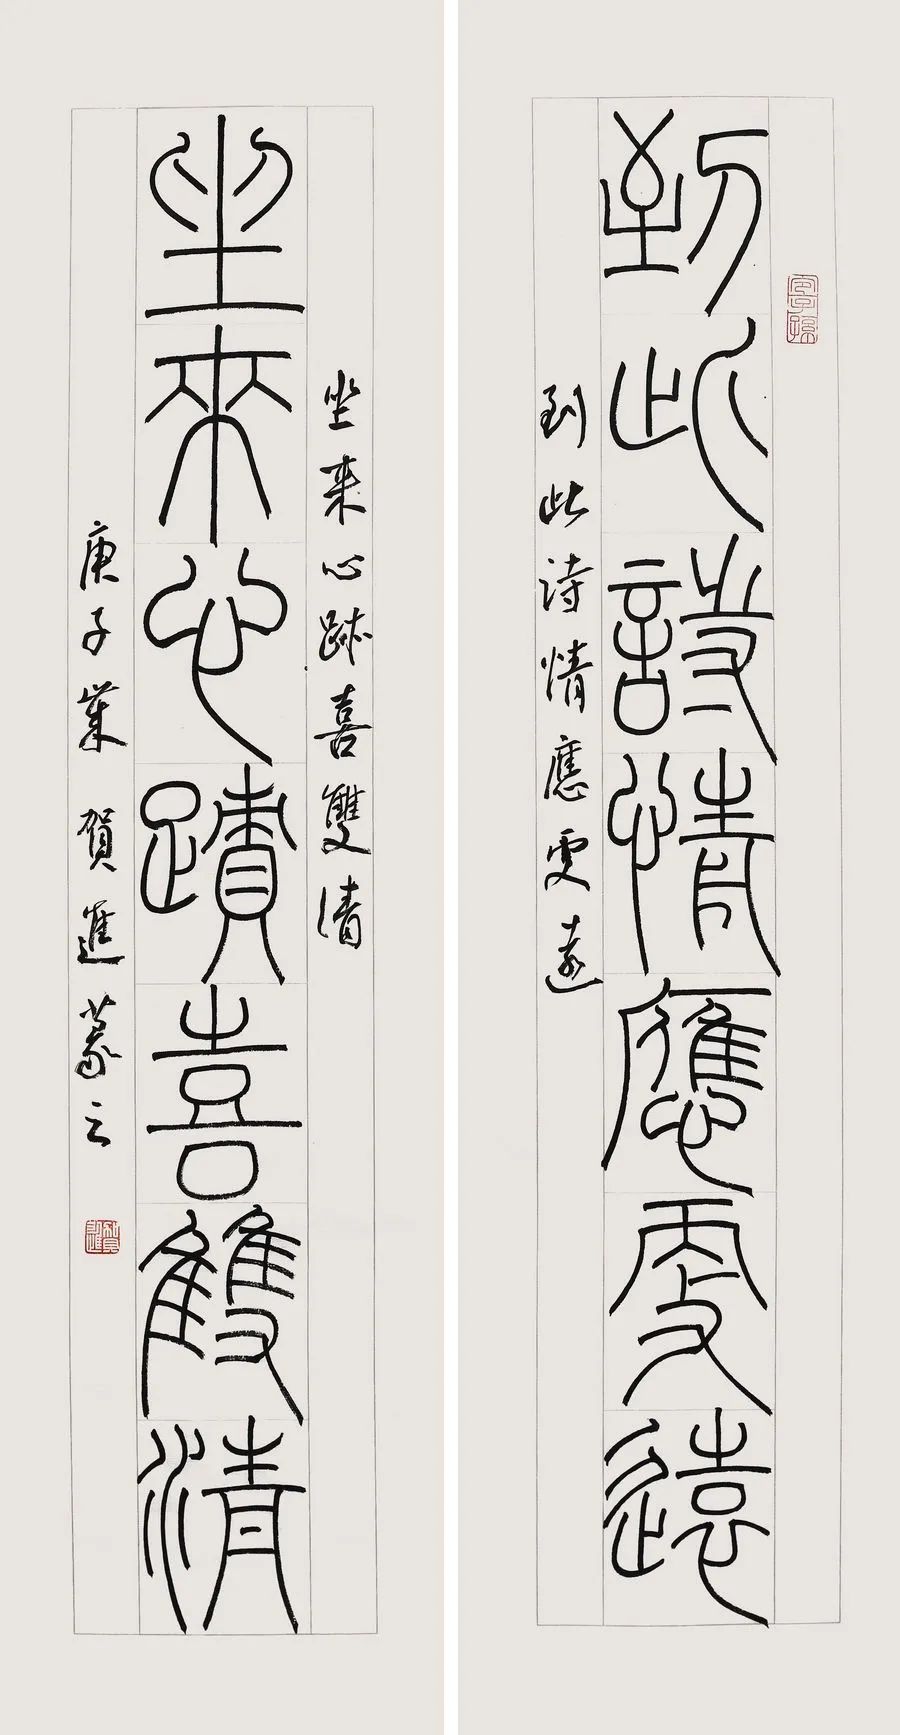 到此詩情應更遠
到此诗情應更遠
坐来心跡喜雙清
坐來心蹟喜雙清
庚子 賀進篆之
賀進